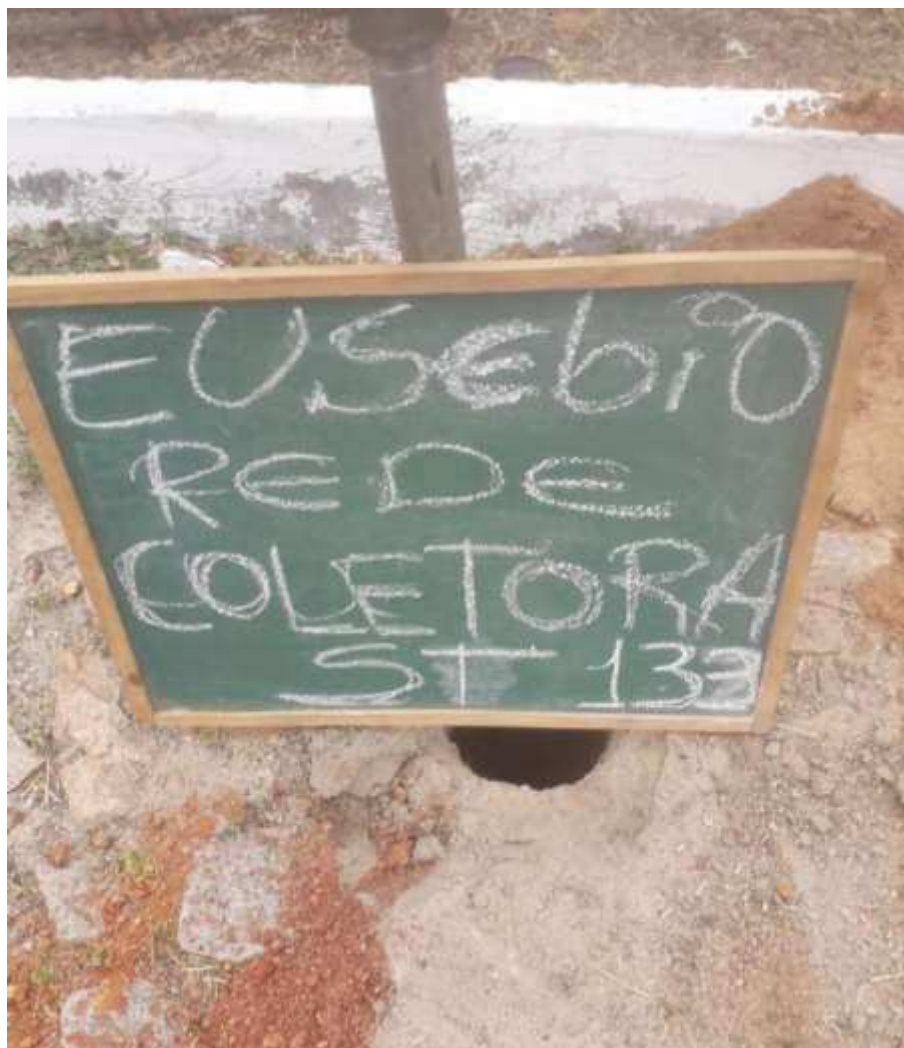 EUSEbiO
REDE
COLETORA
ST 133